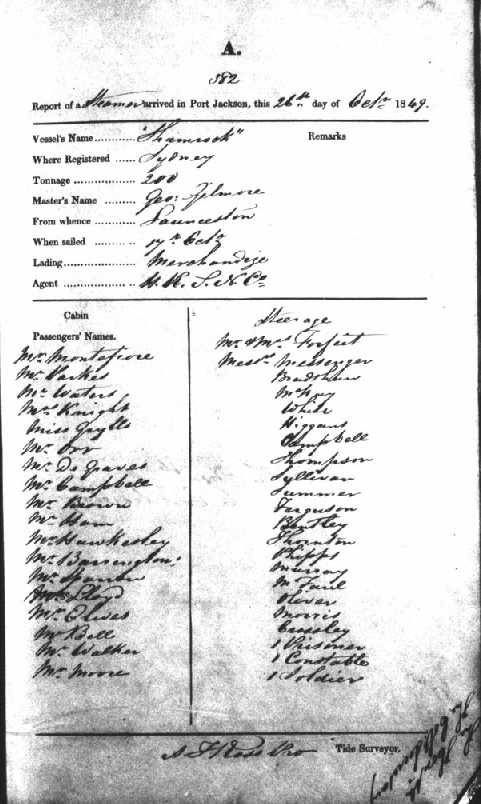 A.
582
Report of a Steamer arrived in Port Jackson, this 26th day of Octr 1849.
Vessel's Name "Shamrock" Remarks
Where Registered Sydney
Tonnage 200
Master's Name Geo: Gilmore
From whence Launceston
When sailed 17th Octr
Lading Merchandize
Agent H. R. S. N. Co
Cabin
Passengers' Names.
Mr Montefiore
Mr Parkes
Mr Waters
Mrs Knight
Miss Grylls
Mr Orr
Mr De Graves
Mr Campbell
Mr Brown
Mr Ham
Mr Hawkesley
Mr Barrington
Mr
Lloyd
Mr Olives
Mr Bell
Mr Walker
Mr Moore
Steerage
Mr & Mrs Forfeit
Messrs Messenger
Bradshaw
McKay
White
Higgans
Campbell
Thompson
Syllivan
Summer
Ferguson
Bentley
Thornton
Phipps
Murray
Oliver
Morris
1 Prisoner
1 Constable
1 Soldier
Tide Surveyor.